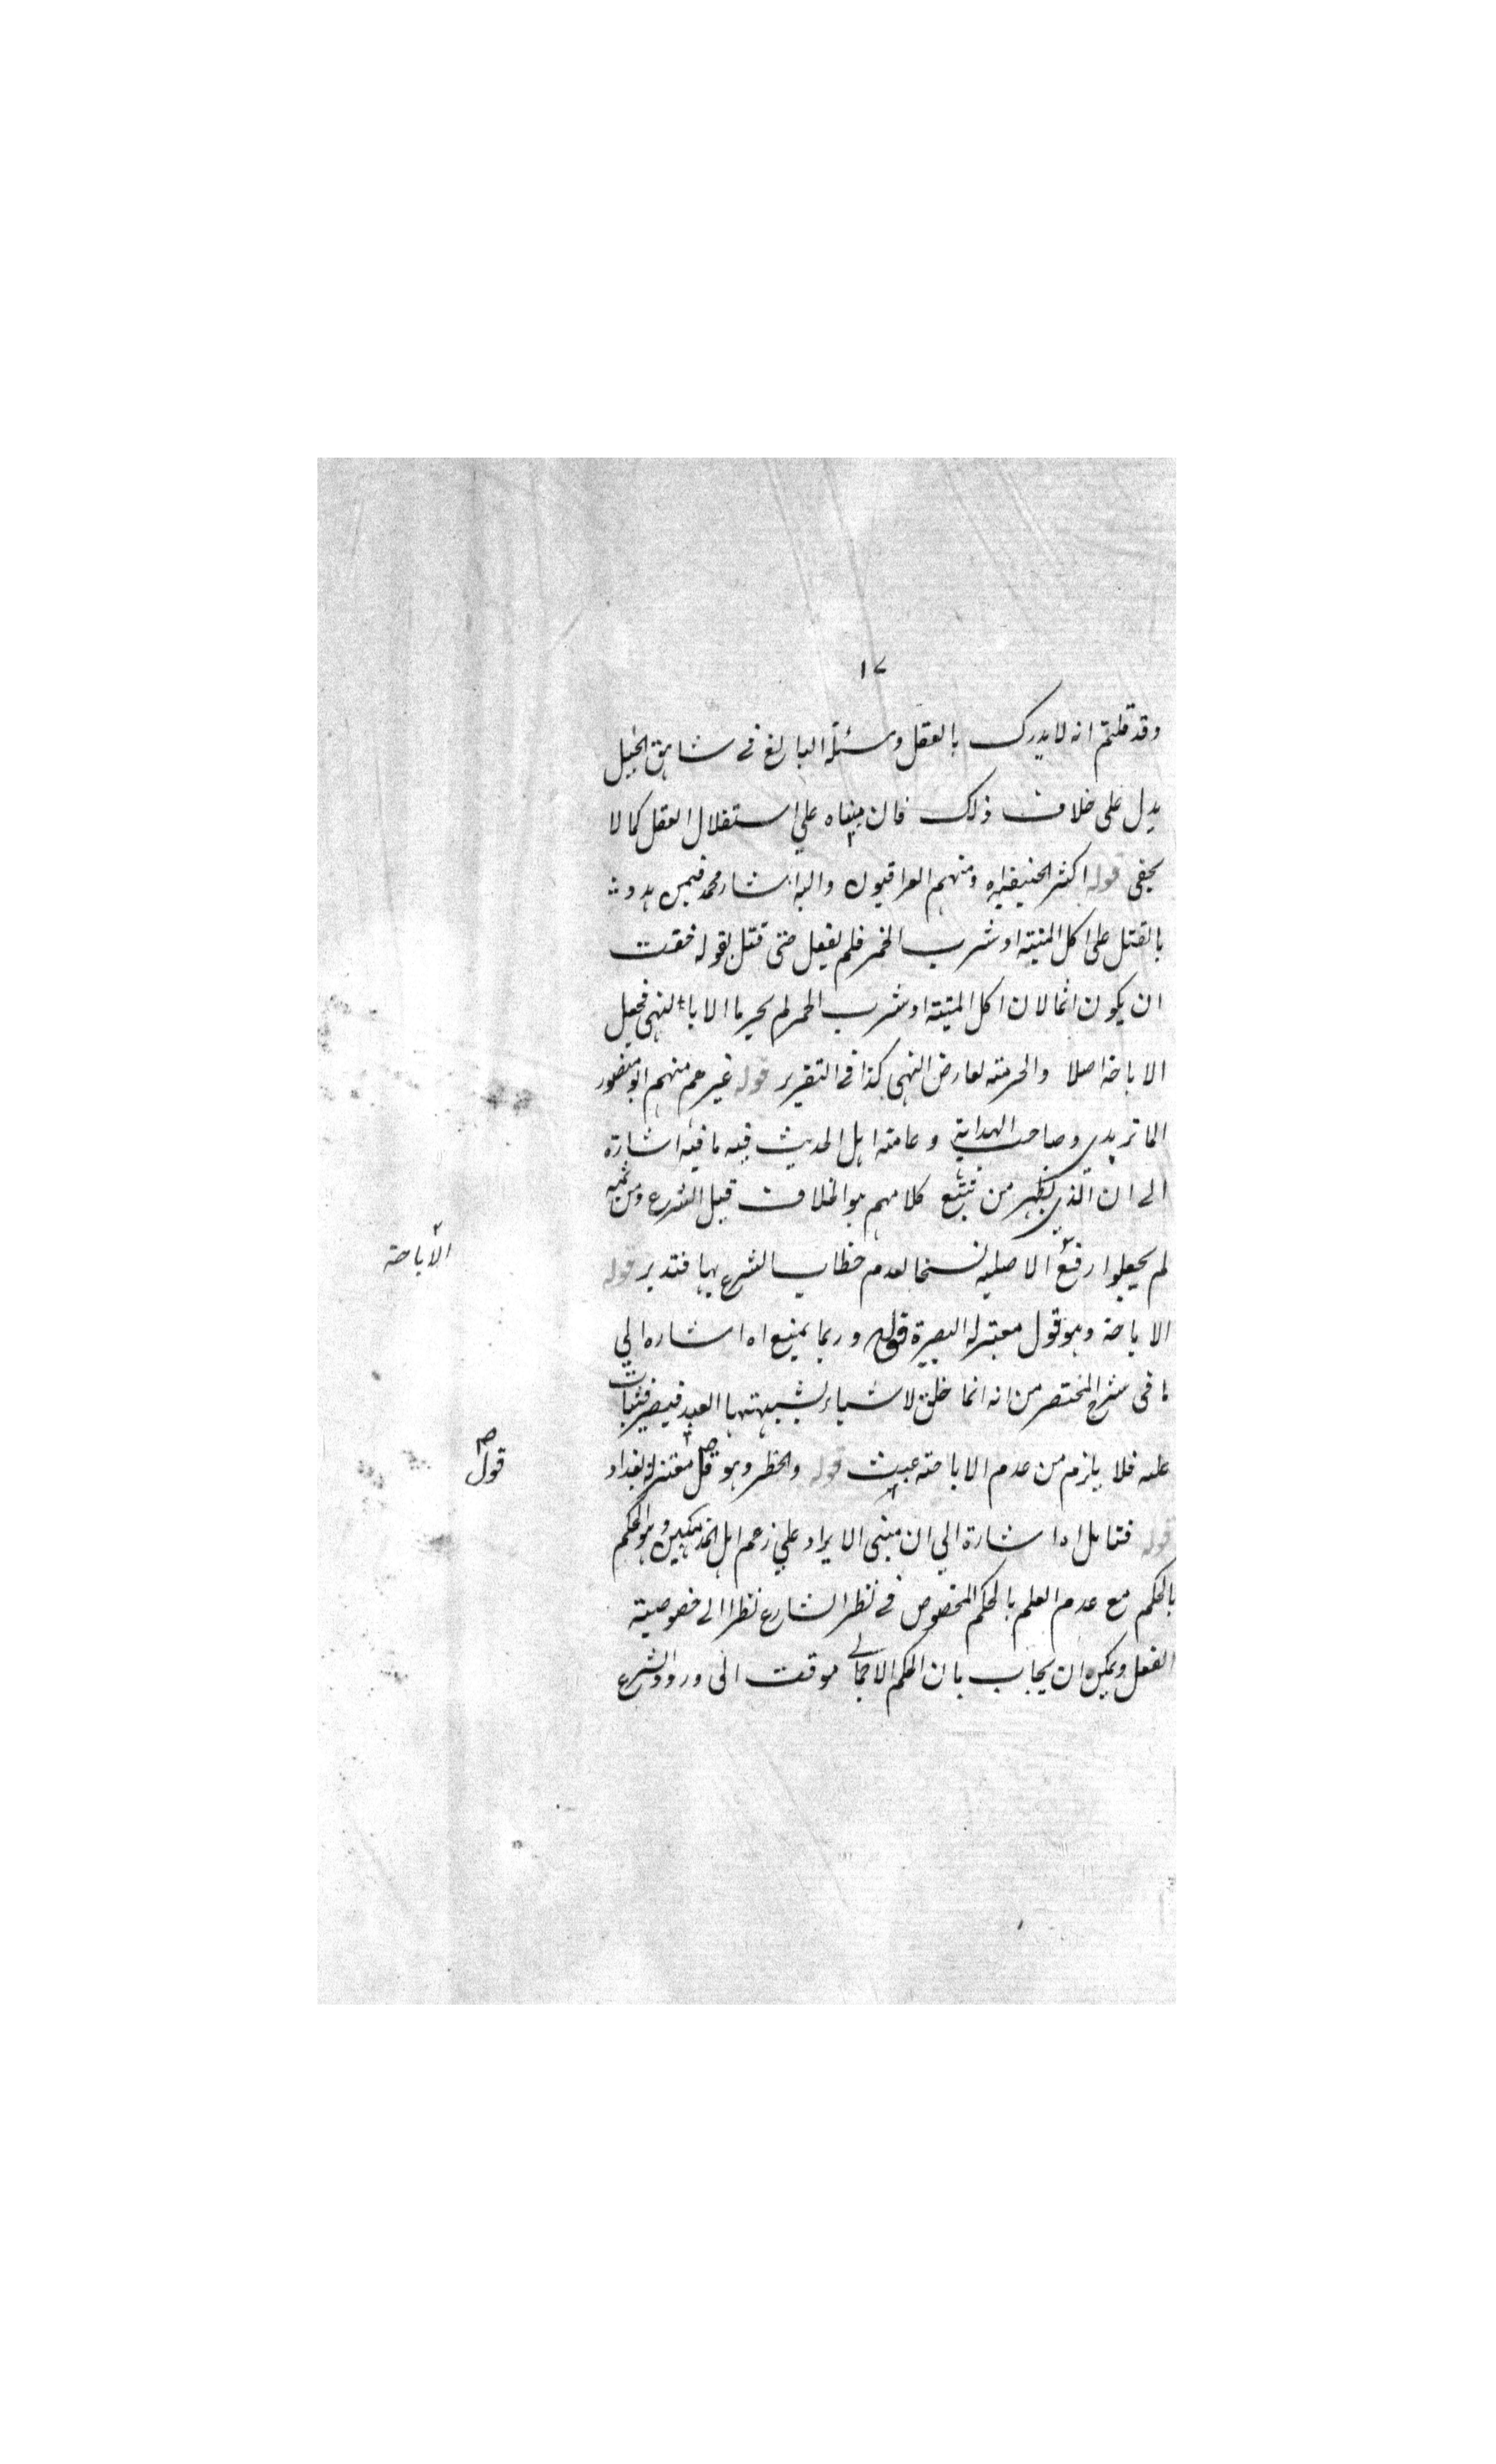 ١٧
وقد قلتم انه لا يدرك بالعقل ومسئلة البالغ في شاهق الجبل
يدل على خلاف ذلك فان مبناه على استقلال العقل كما لا
يخفى قوله اكثر الحنيفيه ومنهم العراقيون واليه اشار محمد فيمن هدد
بالقتل على اكل الميتة او شرب الخمر فلم يفعل حتى قتل بقوله خفت
ان يكون اثما لان اكل الميتة او شرب الخمر لم يحرما الا بالنهى فجعل
الاباحة اصلا والحرمة لعارض النهى كذا في التقرير قوله غيرهم منهم ابو منصور
الماتريدي وصاحب الهداية وعامة اهل الحديث فيه ما فيه اشارة
الى ان الذي يظهر من تتبع كلامهم هو الخلاف قبل الشرع ومن ثمه
لم يجعلوا رفع الاصلية نسخا لعدم خطاب الشرع بها فتدبر قوله
الاباحة
الاباحة وهو قول معتزلة البصرة قوله وربما يمنع اه اشاره الى
ما في شرح المختصر من انه انما خلق الاشياء ليشتهيها العبد فيصبر فيثاب
عليه فلا يلزم من عدم الاباحة عبث قوله والحظر وهو قل معتزلة بغداد
قول
قوله فتامل اه اشارة الى ان مبنى الايراد على زعم اهل الحكم
بالحكم مع عدم العلم بالحكم المخصوص في نظر الشارع نظرا الى خصوصية
الفعل ويمكن ان يجاب بان الحكم الاجمالي موقت الى ورود الشرع